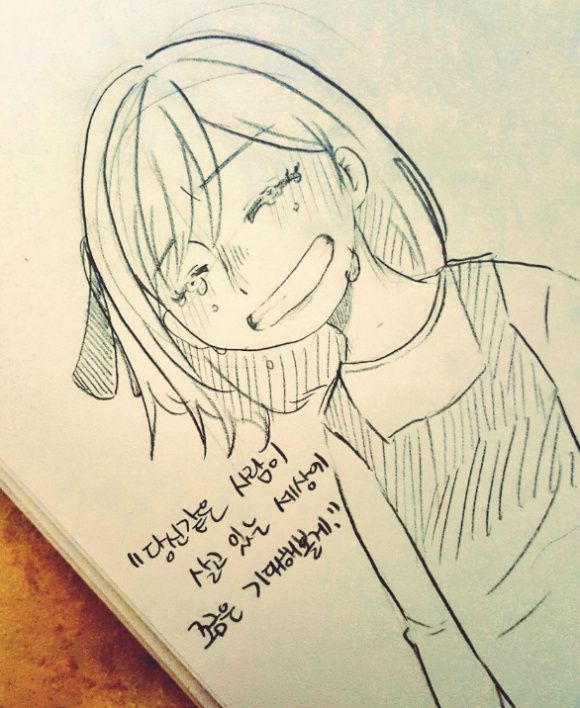 "당신같은 사람이
살고 있는 세상에
쫌은 기대해볼게"